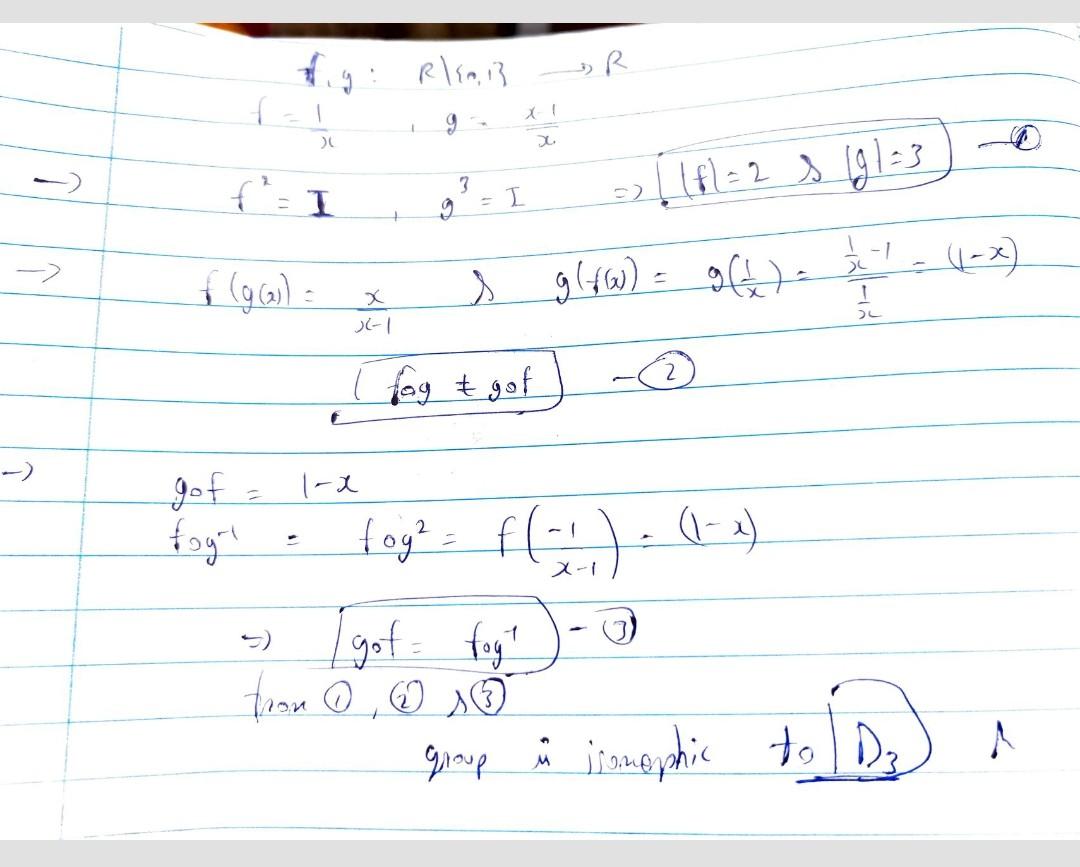 f, g : R\{0,1} → R
f = 1/x , g = x-1/x
→ f² = I , g³ = I => |f| = 2 & |g| = 3 — ①
→ f(g(x)) = x/x-1 & g(f(x)) = g(1/x) = (1/x -1)/(1/x) = (1-x)
fog ≠ gof — ②
→ gof = 1-x
fog⁻¹ = fog² = f(-1/x-1) = (1-x)
=> gof = fog⁻¹ — ③
from ①, ② & ③
group is isomorphic to D₃